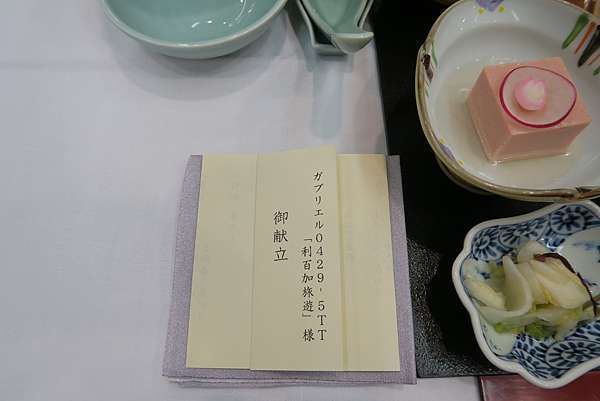 ガブリエル0429-5TT
「利百加旅遊」様
御献立